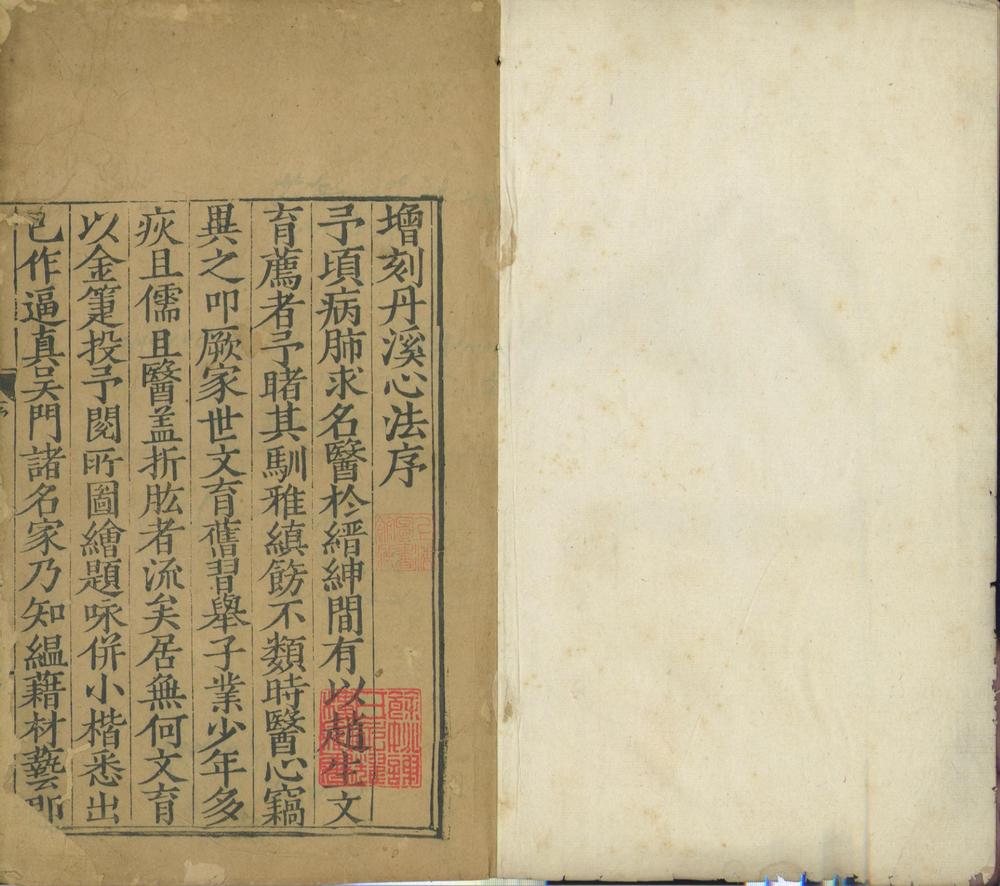 增刻丹溪心法序
予頃病肺求名醫於縉紳間有以趙生文
育薦者予睹其馴雅縝飭不類時醫心竊
異之叩厥家世文育舊習舉子業少年多
疾且儒且醫盖折肱者流矣居無何文育
以金箑投予閱所圖繪題咏併小楷悉出
己作逼真吳門諸名家乃知緼藉材藝即